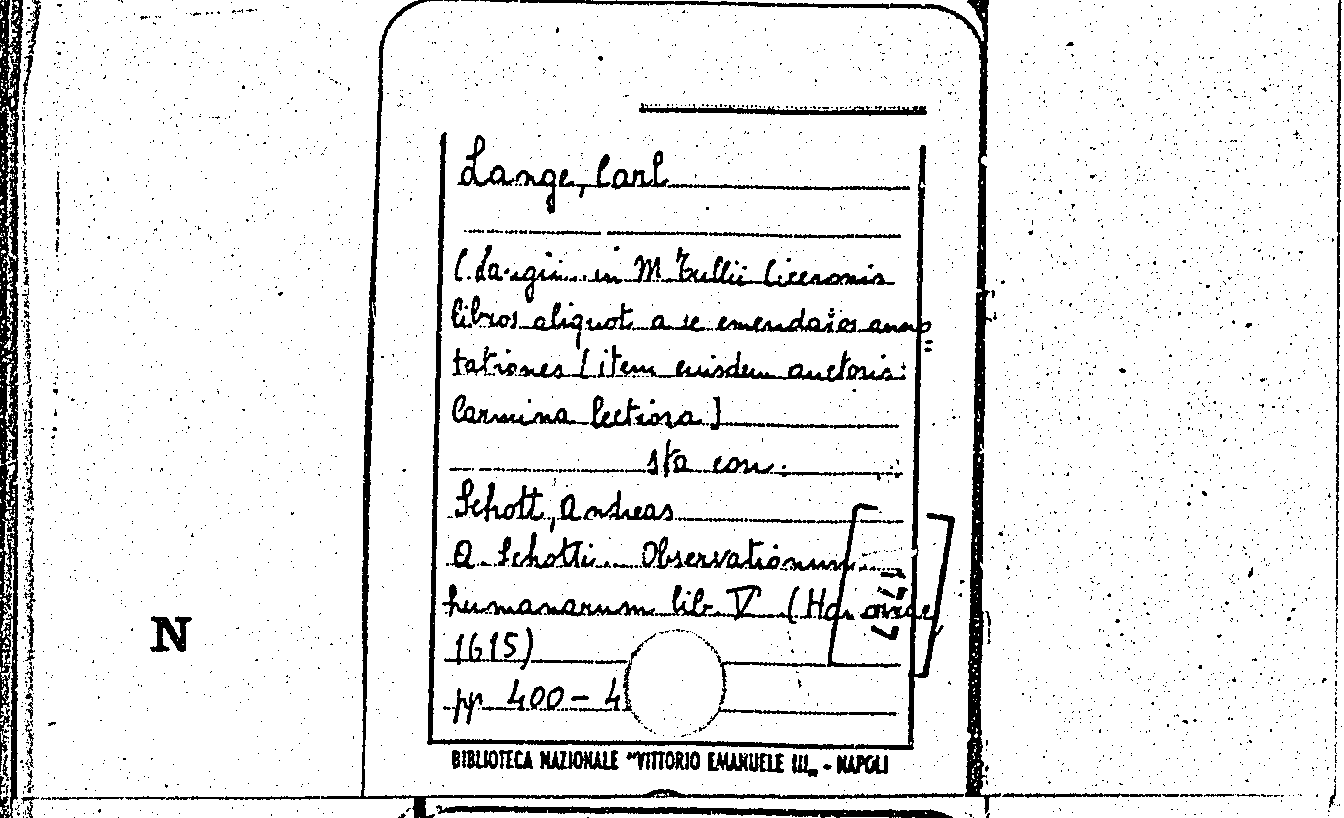 Lange, Carl
C. Langii... in M Tullii Ciceronis
libros aliquot a se emendatos anno
tationes [item eiusdem auctoris:
Carmina lectiora]
sta con:
Schott, Andreas
A. Schotti... Observationum
humanarum lib. V (Hanoviae
1615)
pp 400-4
177
N
BIBLIOTECA NAZIONALE "VITTORIO EMANUELE III„ - NAPOLI